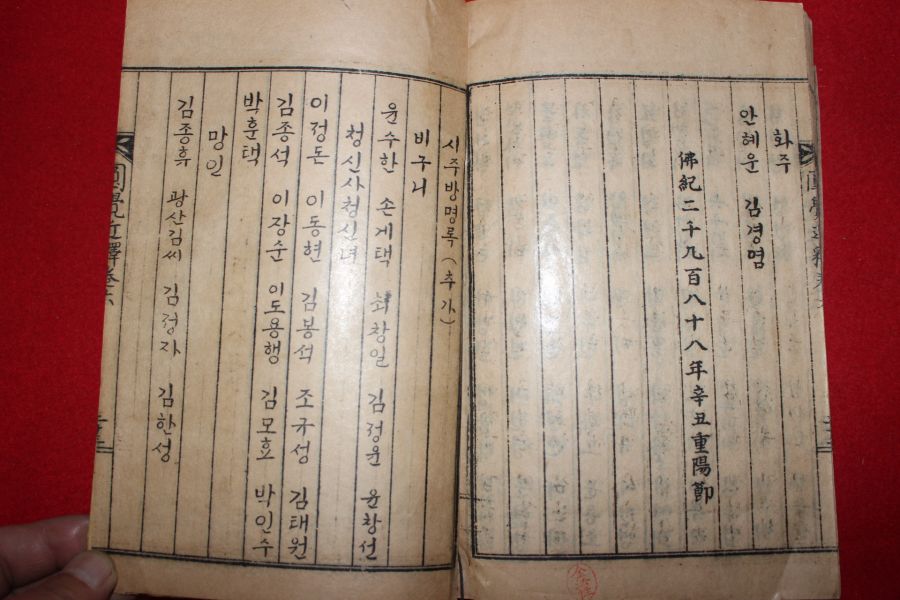 화주
안혜운 김경염
佛紀二千九百八十八年辛丑重陽節
시주방명록(추가)
비구니
윤수한 손게택 김정윤 윤창선
청신사청신녀
이정돈 이동현 김봉석 조규성 김태원
김종석 이장순 이도용행 김모효 박인수
박훈택
망일
김종휴 광산김씨 김정자 김한성
圓覺近釋卷六